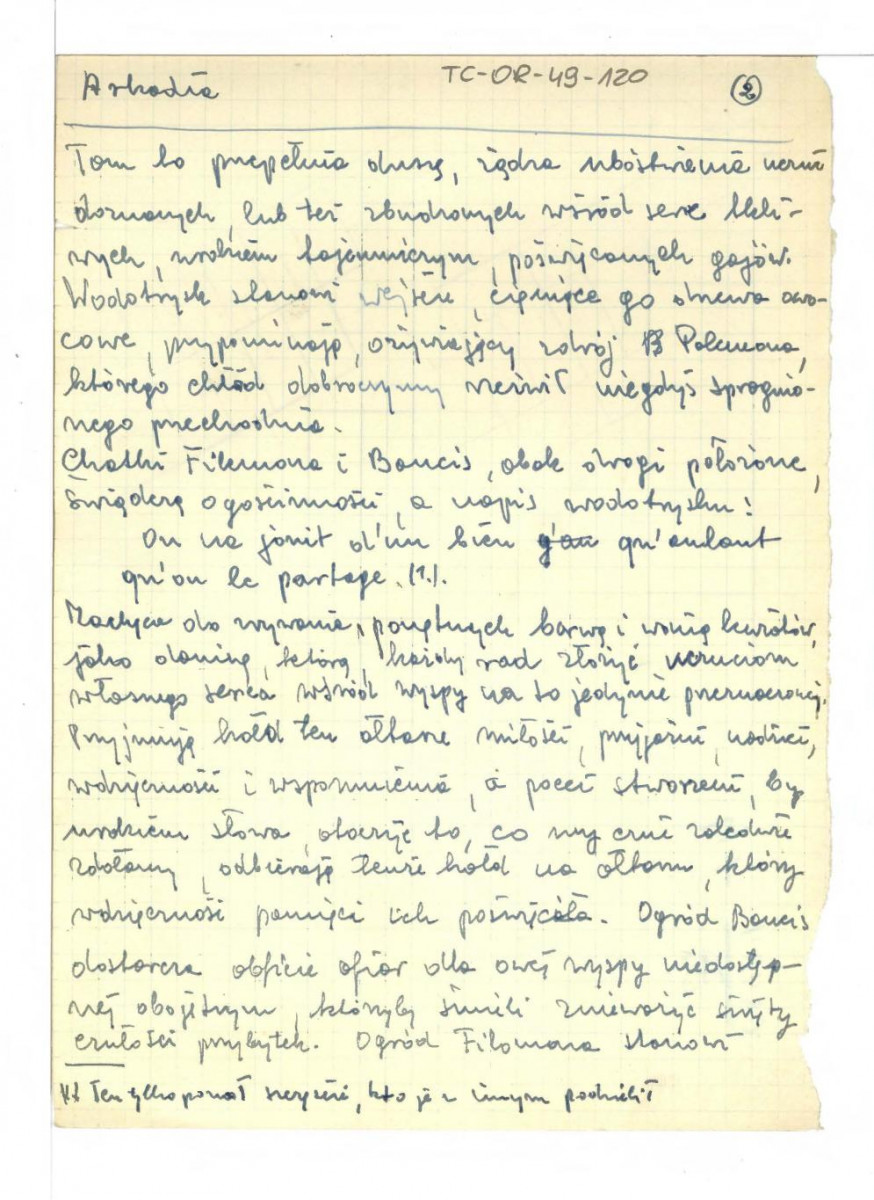 Arkadia
TC-OR-49-120
(2)
Tam to przepełnia duszę, żądza ubóstwienia uczuć
doznanych, lub też zbudzonych wśród serc tkli-
wych, urokiem tajemniczym, poświęcanych gajów.
Wodotrysk stanowi wejście, cieniące go drzewa owo-
cowe, przypominają, ożywiający zdrój Palemona,
którego chłód dobroczynny rzeźwił niegdyś spragnio-
nego przechodnia.
Chatki Filemona i Baucis, obok drogi położone,
świadczą o gościnności, a napis wodotrysku:
On na jouit d'un bien qu'autant
qu'on le partage. (1.).
Zachęca do zrywania, ponętnych barwą i wonią kwiatów,
jako daninę, którą, każdy rad złożyć uczuciom
własnego serca wśród wyspy na to jedynie przeznaczonej.
Przyjmują hołd ten ołtarze miłości, przyjaźni, nadziei,
wdzięczności i wspomnienia, a poeci stworzeni, by
urokiem słowa, otoczyć to, co my czuć zaledwie
zdołamy, odbierają tenże hołd na ołtarzu, który
wdzięczność pamięci ich poświęcała. Ogród Baucis
dostarcza obficie ofiar dla owej wyspy niedostęp-
nej obojętnym, którzyby śmieli znieważyć święty
czułości przybytek. Ogród Filemona stanowi
Ten tylko poznał szczęście, kto je z innym podzielił